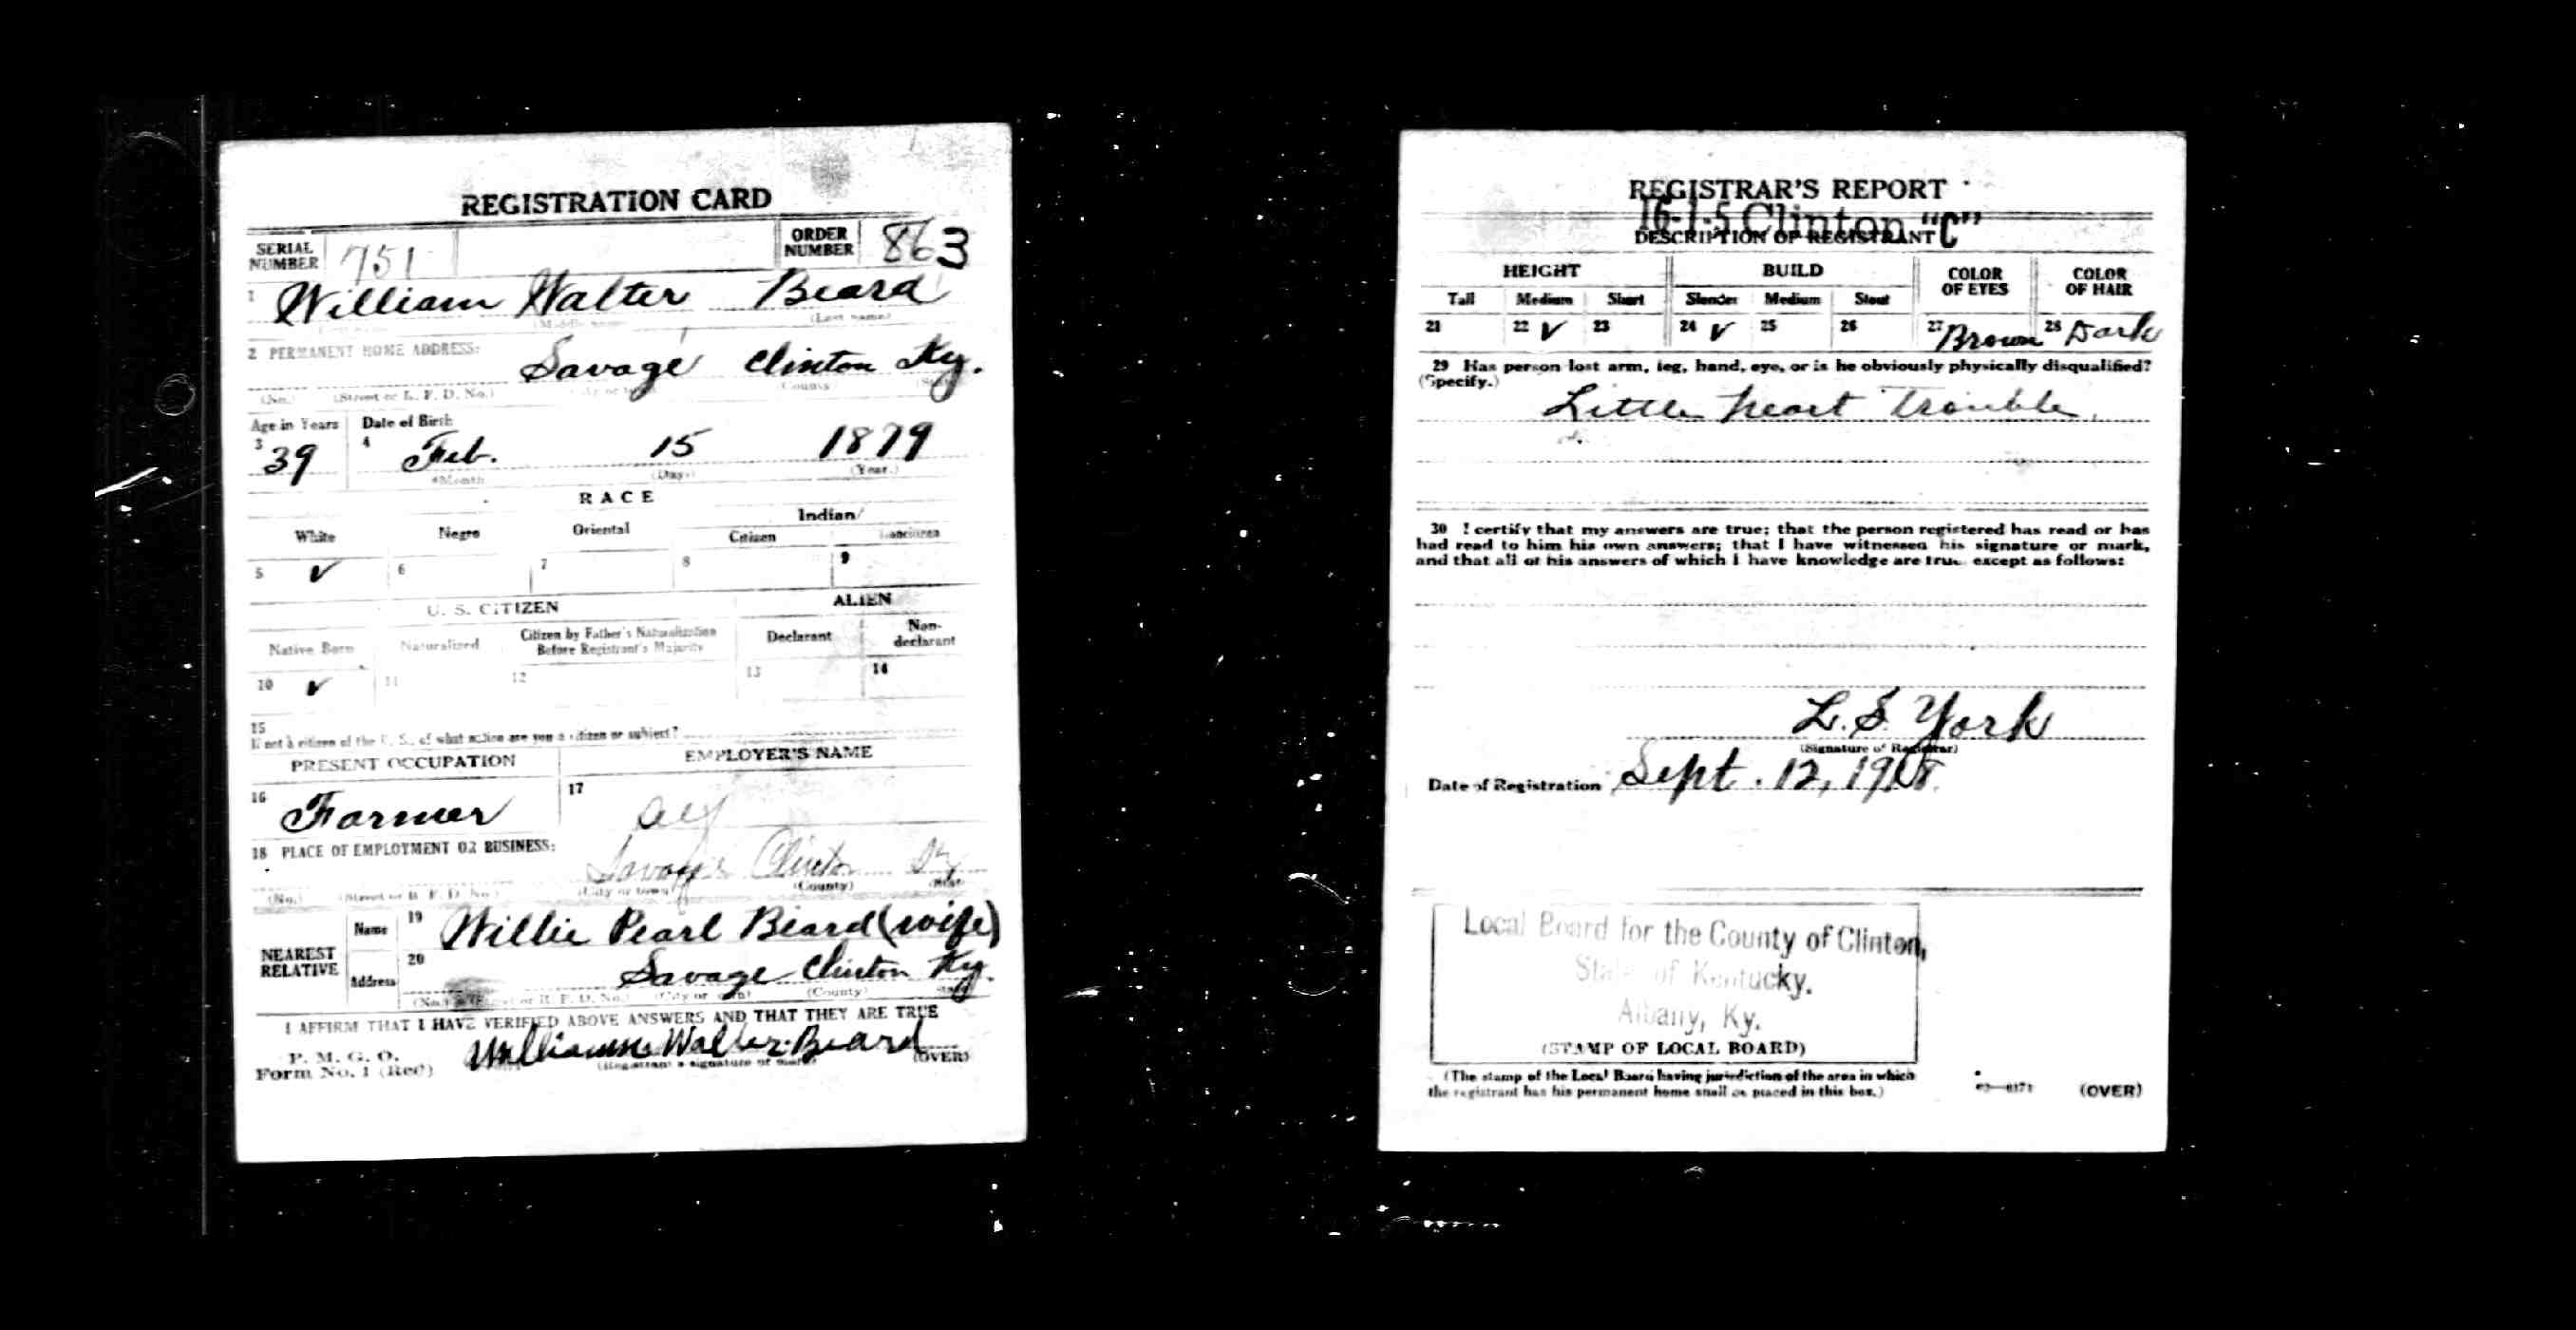 REGISTRATION CARD
SERIAL NUMBER 751 ORDER NUMBER 863
1 William Walter Beard
(Middle name) (Last name)
2 PERMANENT HOME ADDRESS: Savage Clinton Ky.
(No.) (Street or R. F. D. No.) (County)
Age in Years Date of Birth
3 39 4 Feb. 15 1879
(Month) (Day) (Year.)
RACE
White Negro Oriental Indian
Citizen Noncitizen
5 ✓ 6 7 8 9
U. S. CITIZEN ALIEN
Native Born Naturalized Citizen by Father's Naturalization Before Registrant's Majority Declarant Non-declarant
10 ✓ 11 12 13 14
15
If not a citizen of the U. S., of what nation are you a citizen or subject?
PRESENT OCCUPATION EMPLOYER'S NAME
16 Farmer 17
18 PLACE OF EMPLOYMENT OR BUSINESS: Savage Clinton Ky
(No.) (Street or R. F. D. No.) (City or town) (County) (State)
NEAREST RELATIVE Name 19 Willie Pearl Beard (wife)
Address 20 Savage Clinton Ky.
(No.) (Street or R. F. D. No.) (City or town) (County) (State)
I AFFIRM THAT I HAVE VERIFIED ABOVE ANSWERS AND THAT THEY ARE TRUE
P. M. G. O.
Form No. 1 (Red) William Walter Beard
(Registrant's signature or mark) (OVER)
REGISTRAR'S REPORT
16-1-5 Clinton "C"
DESCRIPTION OF REGISTRANT
HEIGHT BUILD COLOR OF EYES COLOR OF HAIR
Tall Medium Short Slender Medium Stout
21 22 ✓ 23 24 ✓ 25 26 27 Brown 28 Dark
29 Has person lost arm, leg, hand, eye, or is he obviously physically disqualified?
(Specify.)
Little heart trouble
30 I certify that my answers are true; that the person registered has read or has
had read to him his own answers; that I have witnessed his signature or mark,
and that all of his answers of which I have knowledge are true, except as follows:
L. S. York
(Signature of Registrar)
Date of Registration Sept. 12, 1918.
Local Board for the County of Clinton,
State of Kentucky.
Albany, Ky.
(STAMP OF LOCAL BOARD)
(The stamp of the Local Board having jurisdiction of the area in which
the registrant has his permanent home shall be placed in this box.)
(OVER)